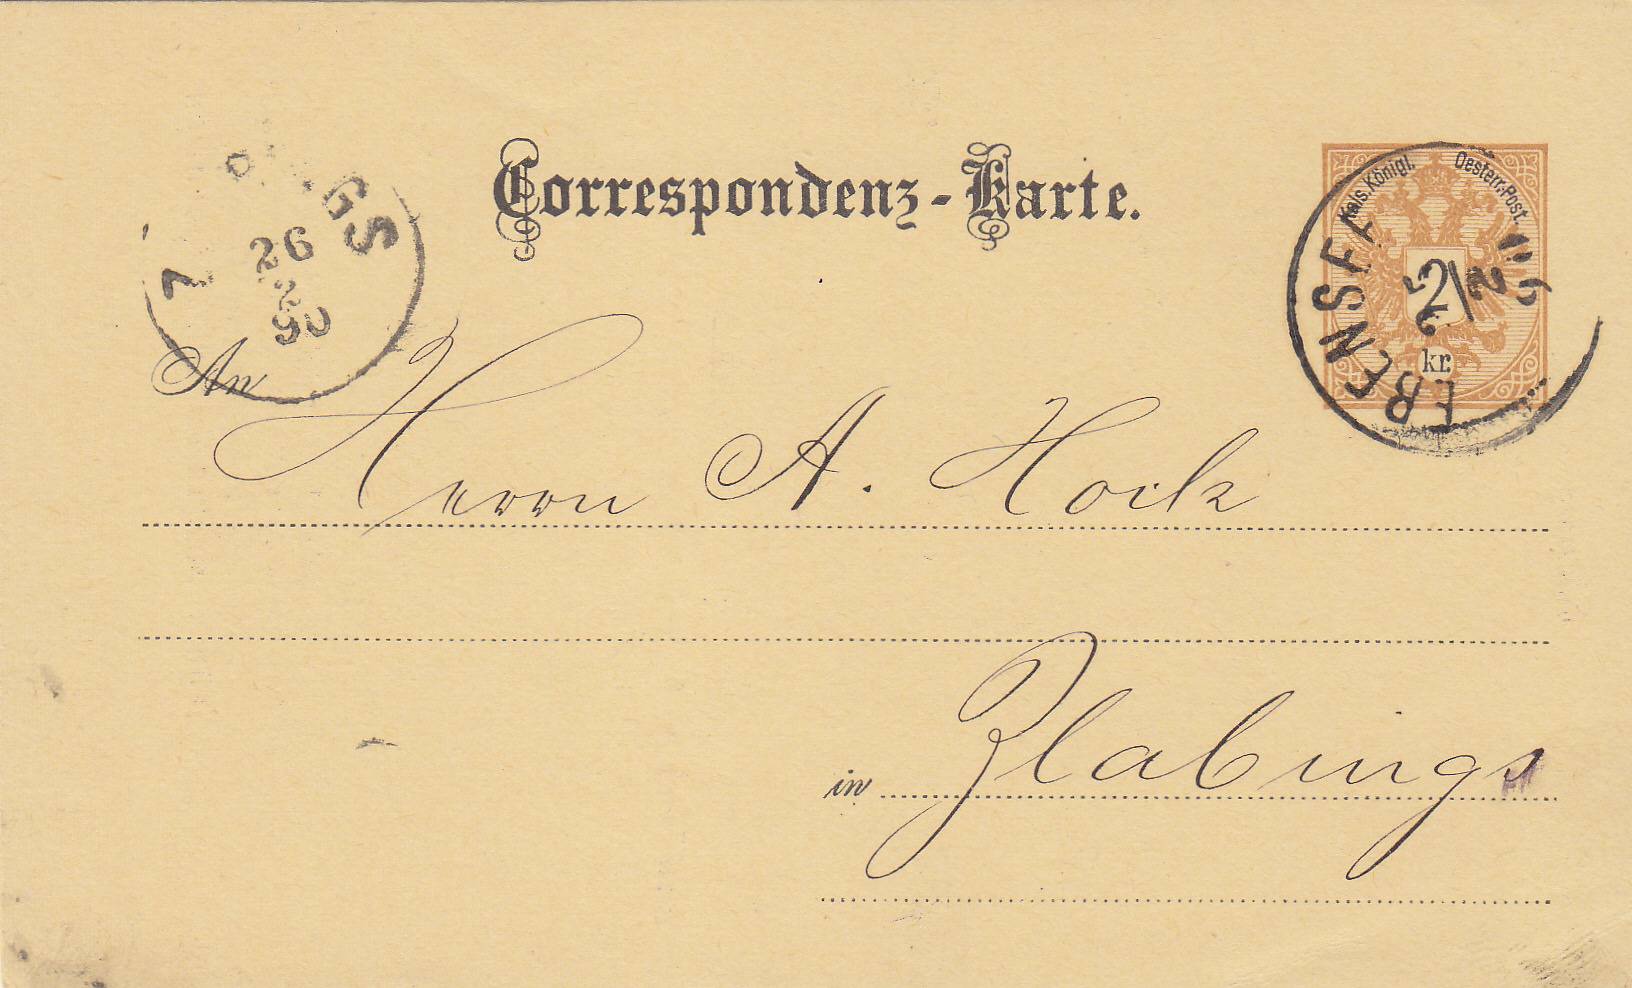 Correspondenz-Karte.
Kais. Königl. Oesterr. Post.
2
kr.
EBENSF
GS
26
2
90
An
Herrn A. Hock
in Zlabings